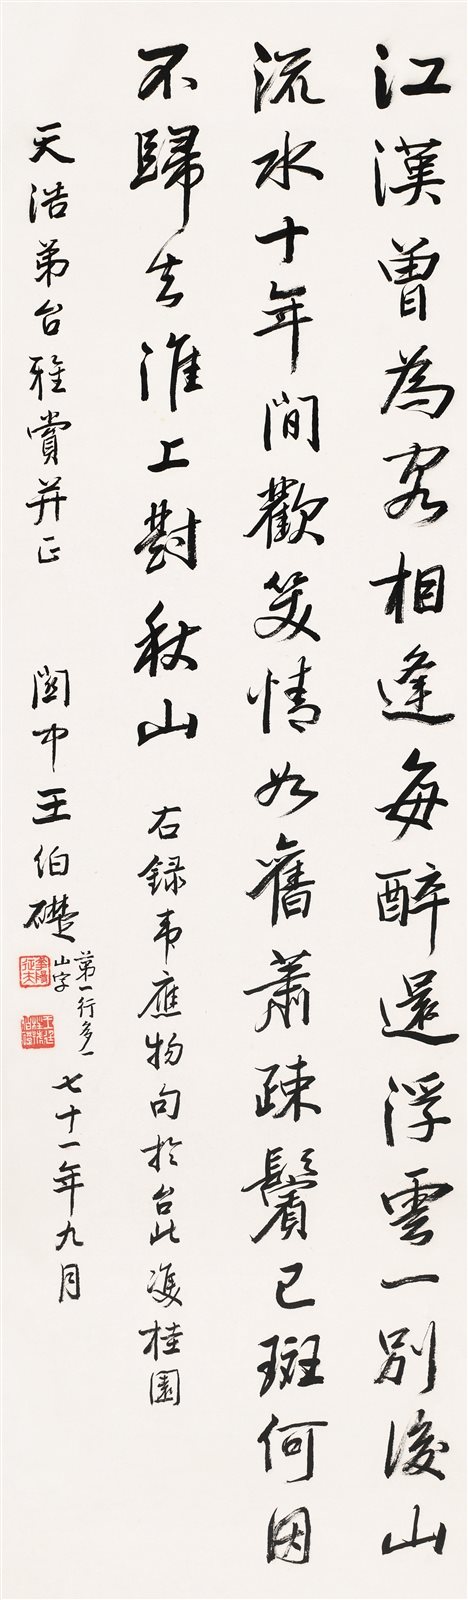 江漢曾為客相逢每醉還浮雲一別後山
流水十年間歡笑情如舊蕭疎鬢已斑何因
不歸去淮上對秋山 右錄韋應物句於台北雙桂園
天浩弟台雅賞并正 關中王伯礎
第一行多一
山字
七十一年九月